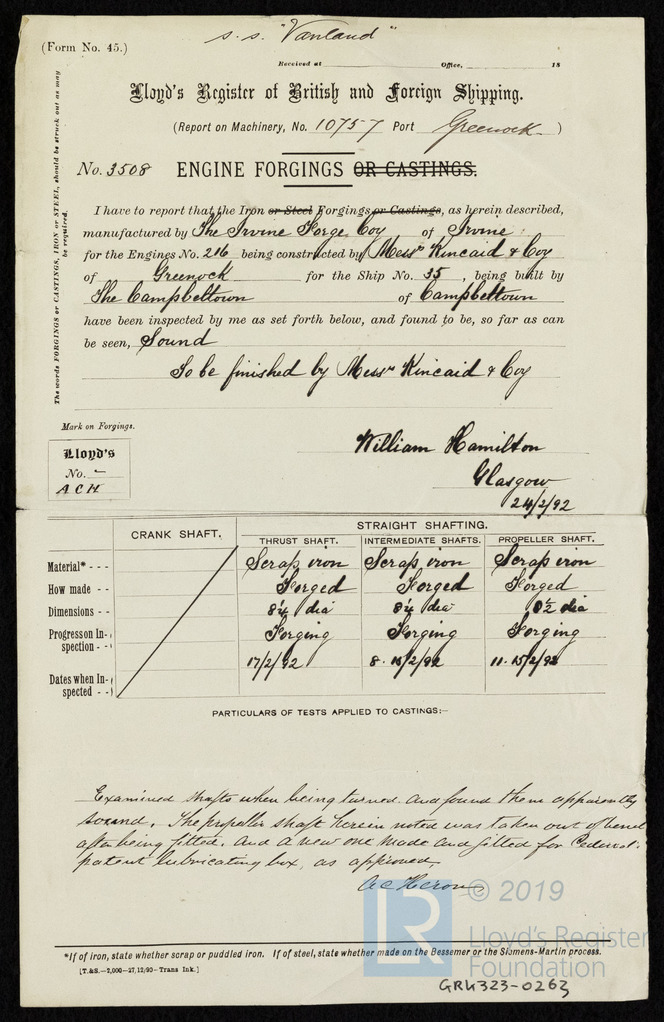 s.s. "Vanland"
(Form No. 45.)
Received at Office, 18
Lloyd's Register of British and Foreign Shipping.
(Report on Machinery, No. 10757 Port Greenock )
No. 3508 ENGINE FORGINGS OR CASTINGS.
The words FORGINGS or CASTINGS, IRON or STEEL, should be struck out as may be required.
I have to report that the Iron or Steel Forgings or Castings, as herein described,
manufactured by The Irvine Forge Coy of Irvine
for the Engines No. 216 being constructed by Messrs Kincaid & Coy
of Greenock for the Ship No. 35, being built by
The Campbeltown of Campbeltown
have been inspected by me as set forth below, and found to be, so far as can
be seen, Sound
To be finished by Messrs Kincaid & Coy
Mark on Forgings.
Lloyd's
No. -
ACH
William Hamilton
Glasgow
24/2/92
CRANK SHAFT. STRAIGHT SHAFTING.
THRUST SHAFT. INTERMEDIATE SHAFTS. PROPELLER SHAFT.
Material* - - - Scrap iron Scrap iron Scrap iron
How made - - Forged Forged Forged
Dimensions - - 8¼ dia 8¼ dia 8½ dia
Progress on Inspection - - Forging Forging Forging
Dates when Inspected - - 17/2/92 8. 15/2/92 11. 15/2/92
PARTICULARS OF TESTS APPLIED TO CASTINGS:—
Examined shafts when being turned and found them apparently
sound. The propeller shaft herein noted was taken out of
after being fitted, and a new one made and fitted for
patent lubricating box, as approved.
AC Heron
© 2019
LR
Lloyd's Register
Foundation
*If of iron, state whether scrap or puddled iron. If of steel, state whether made on the Bessemer or the Siemens-Martin process.
[T.&S.—2,000—27/12/90—Trans Ink.]
GRK323-0263